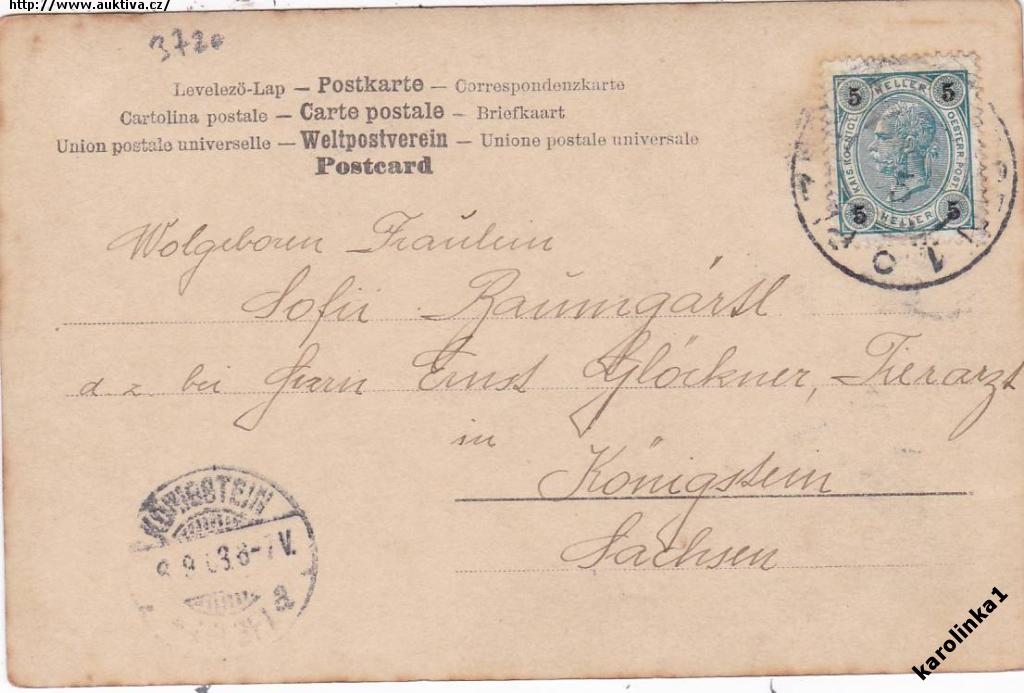 http://www.auktiva.cz/
3720
Levelező-Lap — Postkarte — Correspondenzkarte
Cartolina postale — Carte postale — Briefkaart
Union postale universelle — Weltpostverein — Unione postale universale
Postcard
5 HELLER 5
KAIS. KOENIGL. OESTERR. POST.
5 HELLER 5
Wolgeboren Fräulein
Sofii Baumgärtl
d. z. bei Herrn Ernst Glöckner, Tierarzt
in
Königstein
Sachsen
KÖNIGSTEIN
9 03 6-7 V.
a
karolinka1